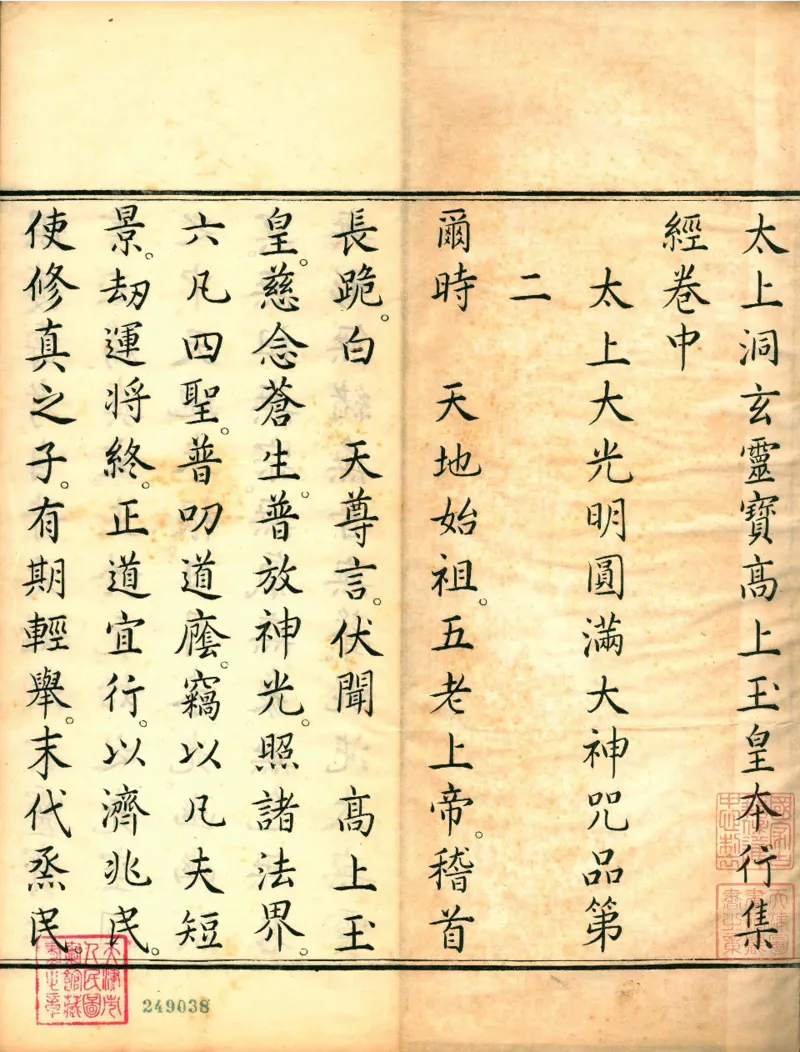 太上洞玄靈寶髙上玉皇本行集
經卷中
太上大光明圓滿大神咒品第
二
爾時　天地始祖。五老上帝。稽首
長跪。白　天尊言。伏聞　髙上玉
皇。慈念蒼生。普放神光。照諸法界。
六凡四聖。普叨道廕。竊以凡夫短
景。刼運将終。正道宜行。以濟兆民。
使修真之子。有期輕舉。末代烝民。
天津市人民圖書館藏書之章
249038